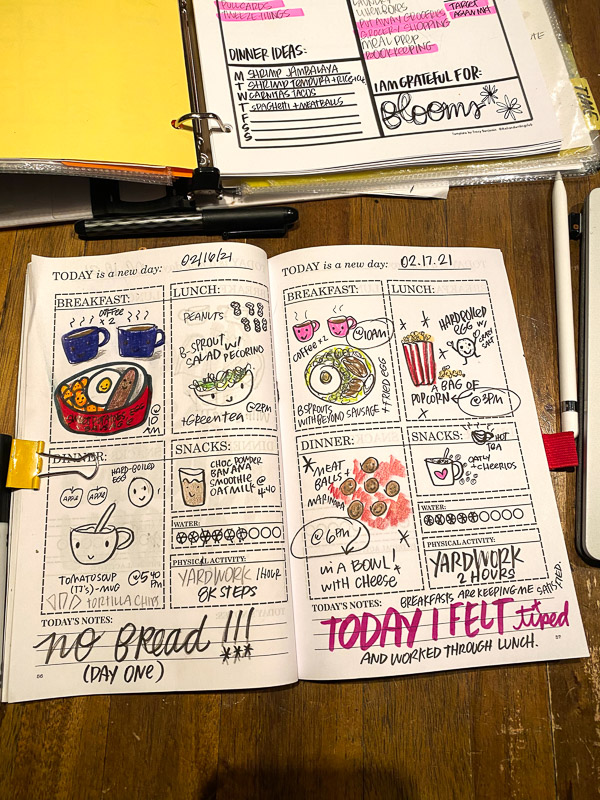 PULLCARDS
TWEEZE THINGS
LAUNDRY
WORKHOURS
PUT AWAY GROCERIES
GROCERY SHOPPING
MEAL PREP
BOOKKEEPING
TARGET
DINNER IDEAS:
M SHRIMP JAMBALAYA
T SHRIMP TEMPURA + RICE
W CARNITAS TACOS
T SPAGHETTI + MEATBALLS
F
S
S
I AM GRATEFUL FOR:
Blooms
TODAY is a new day: 02/16/21
BREAKFAST:
COFFEE
x2
@
10
AM
LUNCH:
PEANUTS
B-SPROUT
SALAD W/
PECORINO
+GREEN TEA
@2PM
DINNER:
HARD-BOILED
EGG
APPLE
APPLE
TOMATO SOUP
(TJ'S)-MUG
@5:40
PM
TORTILLA CHIPS
SNACKS:
CHOC POWDER
BANANA
SMOOTHIE
OATMILK @
4:40
WATER:
PHYSICAL ACTIVITY:
YARDWORK 1 HOUR
8K STEPS
TODAY'S NOTES:
NO BREAD!!!
(DAY ONE)
56
TODAY is a new day: 02.17.21
BREAKFAST:
COFFEE x2
@10AM
B SPROUTS
WITH BEYOND SAUSAGE
+ FRIED EGG
LUNCH:
HARDBOILED
EGG W/
CURRY
SALT
A BAG OF
POPCORN
@3PM
DINNER:
MEAT
BALLS +
MARINARA
@6PM
IN A BOWL!
WITH CHEESE
SNACKS:
HOT
TEA
OATLY
+ CHEERIOS
WATER:
PHYSICAL ACTIVITY:
YARDWORK
2 HOURS
TODAY'S NOTES:
BREAKFASTS ARE KEEPING ME SATISFIED.
TODAY I FELT tired
AND WORKED THROUGH LUNCH.
57